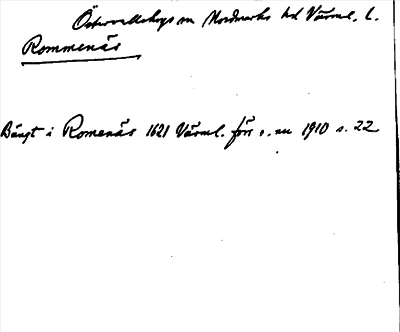 Östervallskogs sn Nordmarks hd Värml. l.
Rommenäs
Bängt i Romenäs 1621 Värml. förr o. nu 1910 s. 22